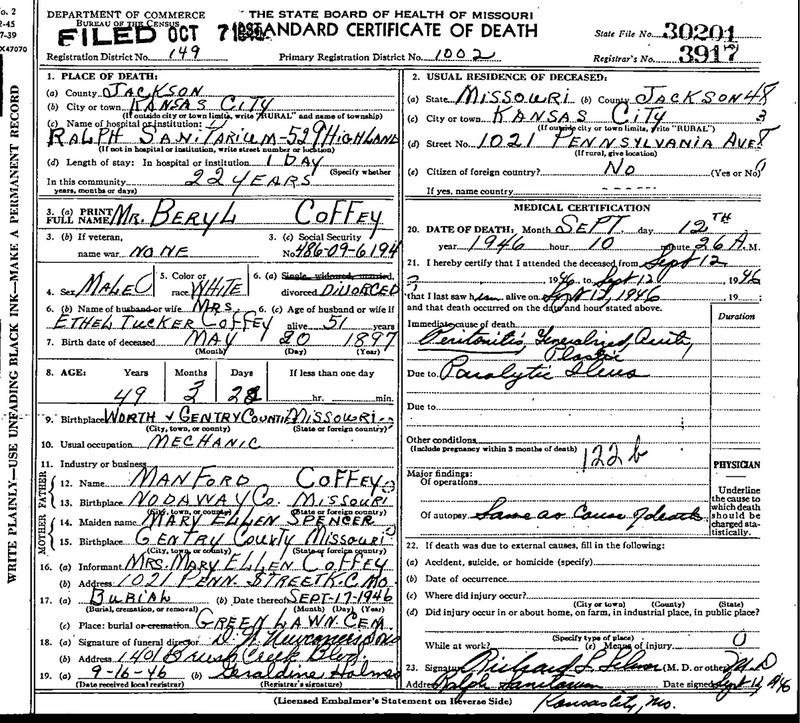 o. 2
2-45
7-39
X47070
WRITE PLAINLY—USE UNFADING BLACK INK—MAKE A PERMANENT RECORD
DEPARTMENT OF COMMERCE
BUREAU OF THE CENSUS
THE STATE BOARD OF HEALTH OF MISSOURI
FILED OCT 7
STANDARD CERTIFICATE OF DEATH
State File No. 30201
Registration District No. 149
Primary Registration District No. 1002
Registrar's No. 3917
1. PLACE OF DEATH:
(a) County JACKSON
(b) City or town KANSAS CITY
(If outside city or town limits, write "RURAL" and name of township)
(c) Name of hospital or institution:
RALPH SANITARIUM-529 HIGHLAND
(If not in hospital or institution, write street number or location)
(d) Length of stay: In hospital or institution 1 DAY
(Specify whether
In this community 22 YEARS
years, months or days)
3. (a) PRINT FULL NAME MR. BERYL COFFEY
3. (b) If veteran, name war NONE
3. (c) Social Security No. 486-09-6194
4. Sex MALE
5. Color or race WHITE
6. (a) Single, widowed, married, divorced DIVORCED
6. (b) Name of husband or wife MRS. ETHEL TUCKER COFFEY
6. (c) Age of husband or wife if alive 51 years
7. Birth date of deceased MAY 20 1897
(Month) (Day) (Year)
8. AGE: Years Months Days If less than one day
49 3 hr. min.
9. Birthplace WORTH & GENTRY COUNTIE MISSOURI
(City, town, or county) (State or foreign country)
10. Usual occupation MECHANIC
11. Industry or business
FATHER
12. Name MANFORD COFFEY
13. Birthplace NODAWAY CO. MISSOURI
(City, town, or county) (State or foreign country)
MOTHER
14. Maiden name MARY ELLEN SPENCER
15. Birthplace GENTRY COUNTY MISSOURI
(City, town, or county) (State or foreign country)
16. (a) Informant MRS. MARY ELLEN COFFEY
(b) Address 1021 PENN. STREET K.C. MO.
17. (a) BURIAL (b) Date thereof SEPT-17-1946
(Burial, cremation, or removal) (Month) (Day) (Year)
(c) Place: burial or cremation GREEN LAWN CEM.
18. (a) Signature of funeral director D. W. Newcomers Sons
(b) Address 1401 Brush Creek Blvd.
19. (a) 9-16-46 (b) Geraldine Holmes
(Date received local registrar) (Registrar's signature)
2. USUAL RESIDENCE OF DECEASED:
(a) State MISSOURI (b) County JACKSON 48
(c) City or town KANSAS CITY 3
(If outside city or town limits, write "RURAL")
(d) Street No. 1021 PENNSYLVANIA AVE. 8
(If rural, give location)
(e) Citizen of foreign country? NO (Yes or No)
If yes, name country
MEDICAL CERTIFICATION
20. DATE OF DEATH: Month SEPT. day 12TH
year 1946 hour 10 minute 26 A. M.
21. I hereby certify that I attended the deceased from Sept 12
1946, to Sept 12, 1946
that I last saw him alive on Sept 12, 1946, 19
and that death occurred on the date and hour stated above.
Duration
Immediate cause of death
Peritonitis, Generalized, Acute,
Plastic
Due to Paralytic Ileus
Due to
Other conditions
(Include pregnancy within 3 months of death)
122 b
Major findings:
Of operations
Of autopsy Same as Cause of death
PHYSICIAN
Underline the cause to which death should be charged statistically.
22. If death was due to external causes, fill in the following:
(a) Accident, suicide, or homicide (specify)
(b) Date of occurrence
(c) Where did injury occur?
(City or town) (County) (State)
(d) Did injury occur in or about home, on farm, in industrial place, in public place?
(Specify type of place)
While at work? (e) Means of injury
23. Signature Richard L. (M. D. or other) M.D
Address Ralph Sanitarium Date signed Sept 12, 1946
Kansas City, Mo.
(Licensed Embalmer's Statement on Reverse Side)